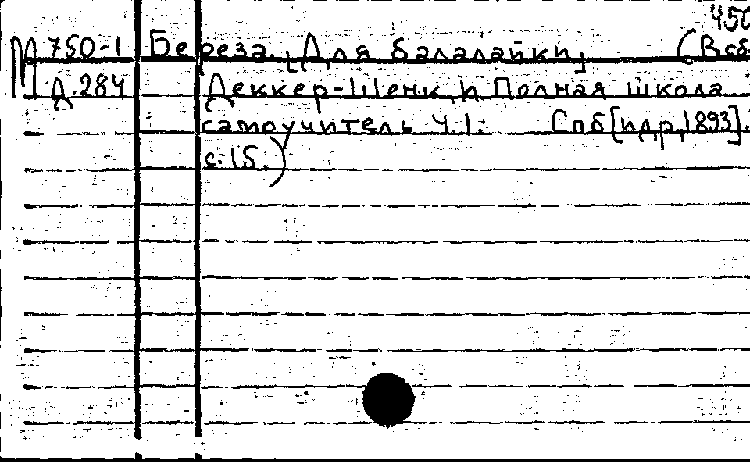 450
М 750-1 Береза. [Для балалайки] (В сб
Д.284 Деккер-Шенк, И Полная школа
самоучитель Ч.1. Спб [и др, 1893].
с.15.)